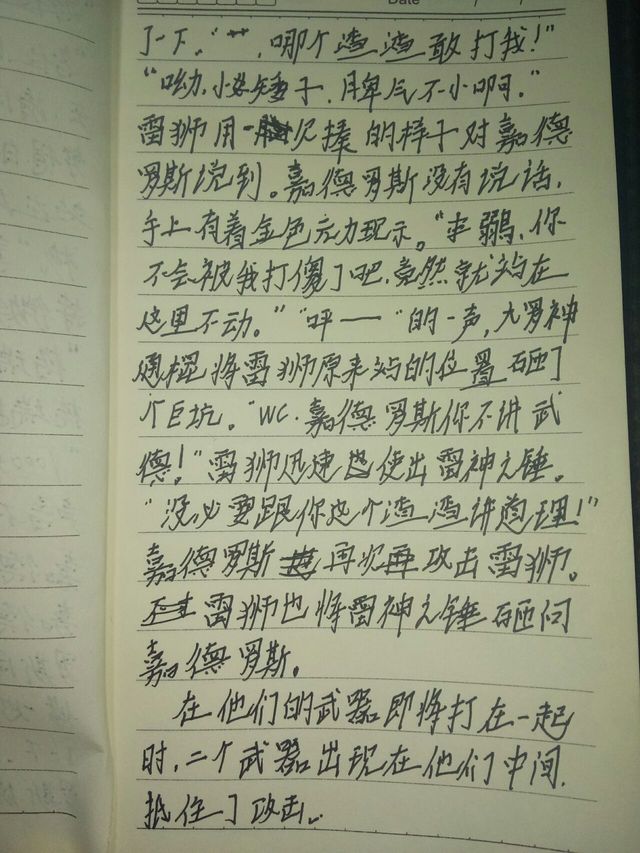 Date / /
了一下。“艹,哪个渣渣敢打我!”
“呦,小矮子,脾气不小啊。”
雷狮用一欠揍的样子对嘉德
罗斯说到。嘉德罗斯没有说话,
手上有着金色元力现示。“弱,你
不会被我打傻了吧,竟然就站在
这里不动。”“呯——”的一声,大罗神
通棍将雷狮原来站的位置砸了
个巨坑。“WC.嘉德罗斯你不讲武
德!”雷狮迅速也使出雷神之锤。
“没必要跟你这个渣渣讲道理!”
嘉德罗斯再次攻击雷狮。
雷狮也将雷神之锤砸向
嘉德罗斯。
在他们的武器即将打在一起
时,二个武器出现在他们中间,
抵住了攻击。